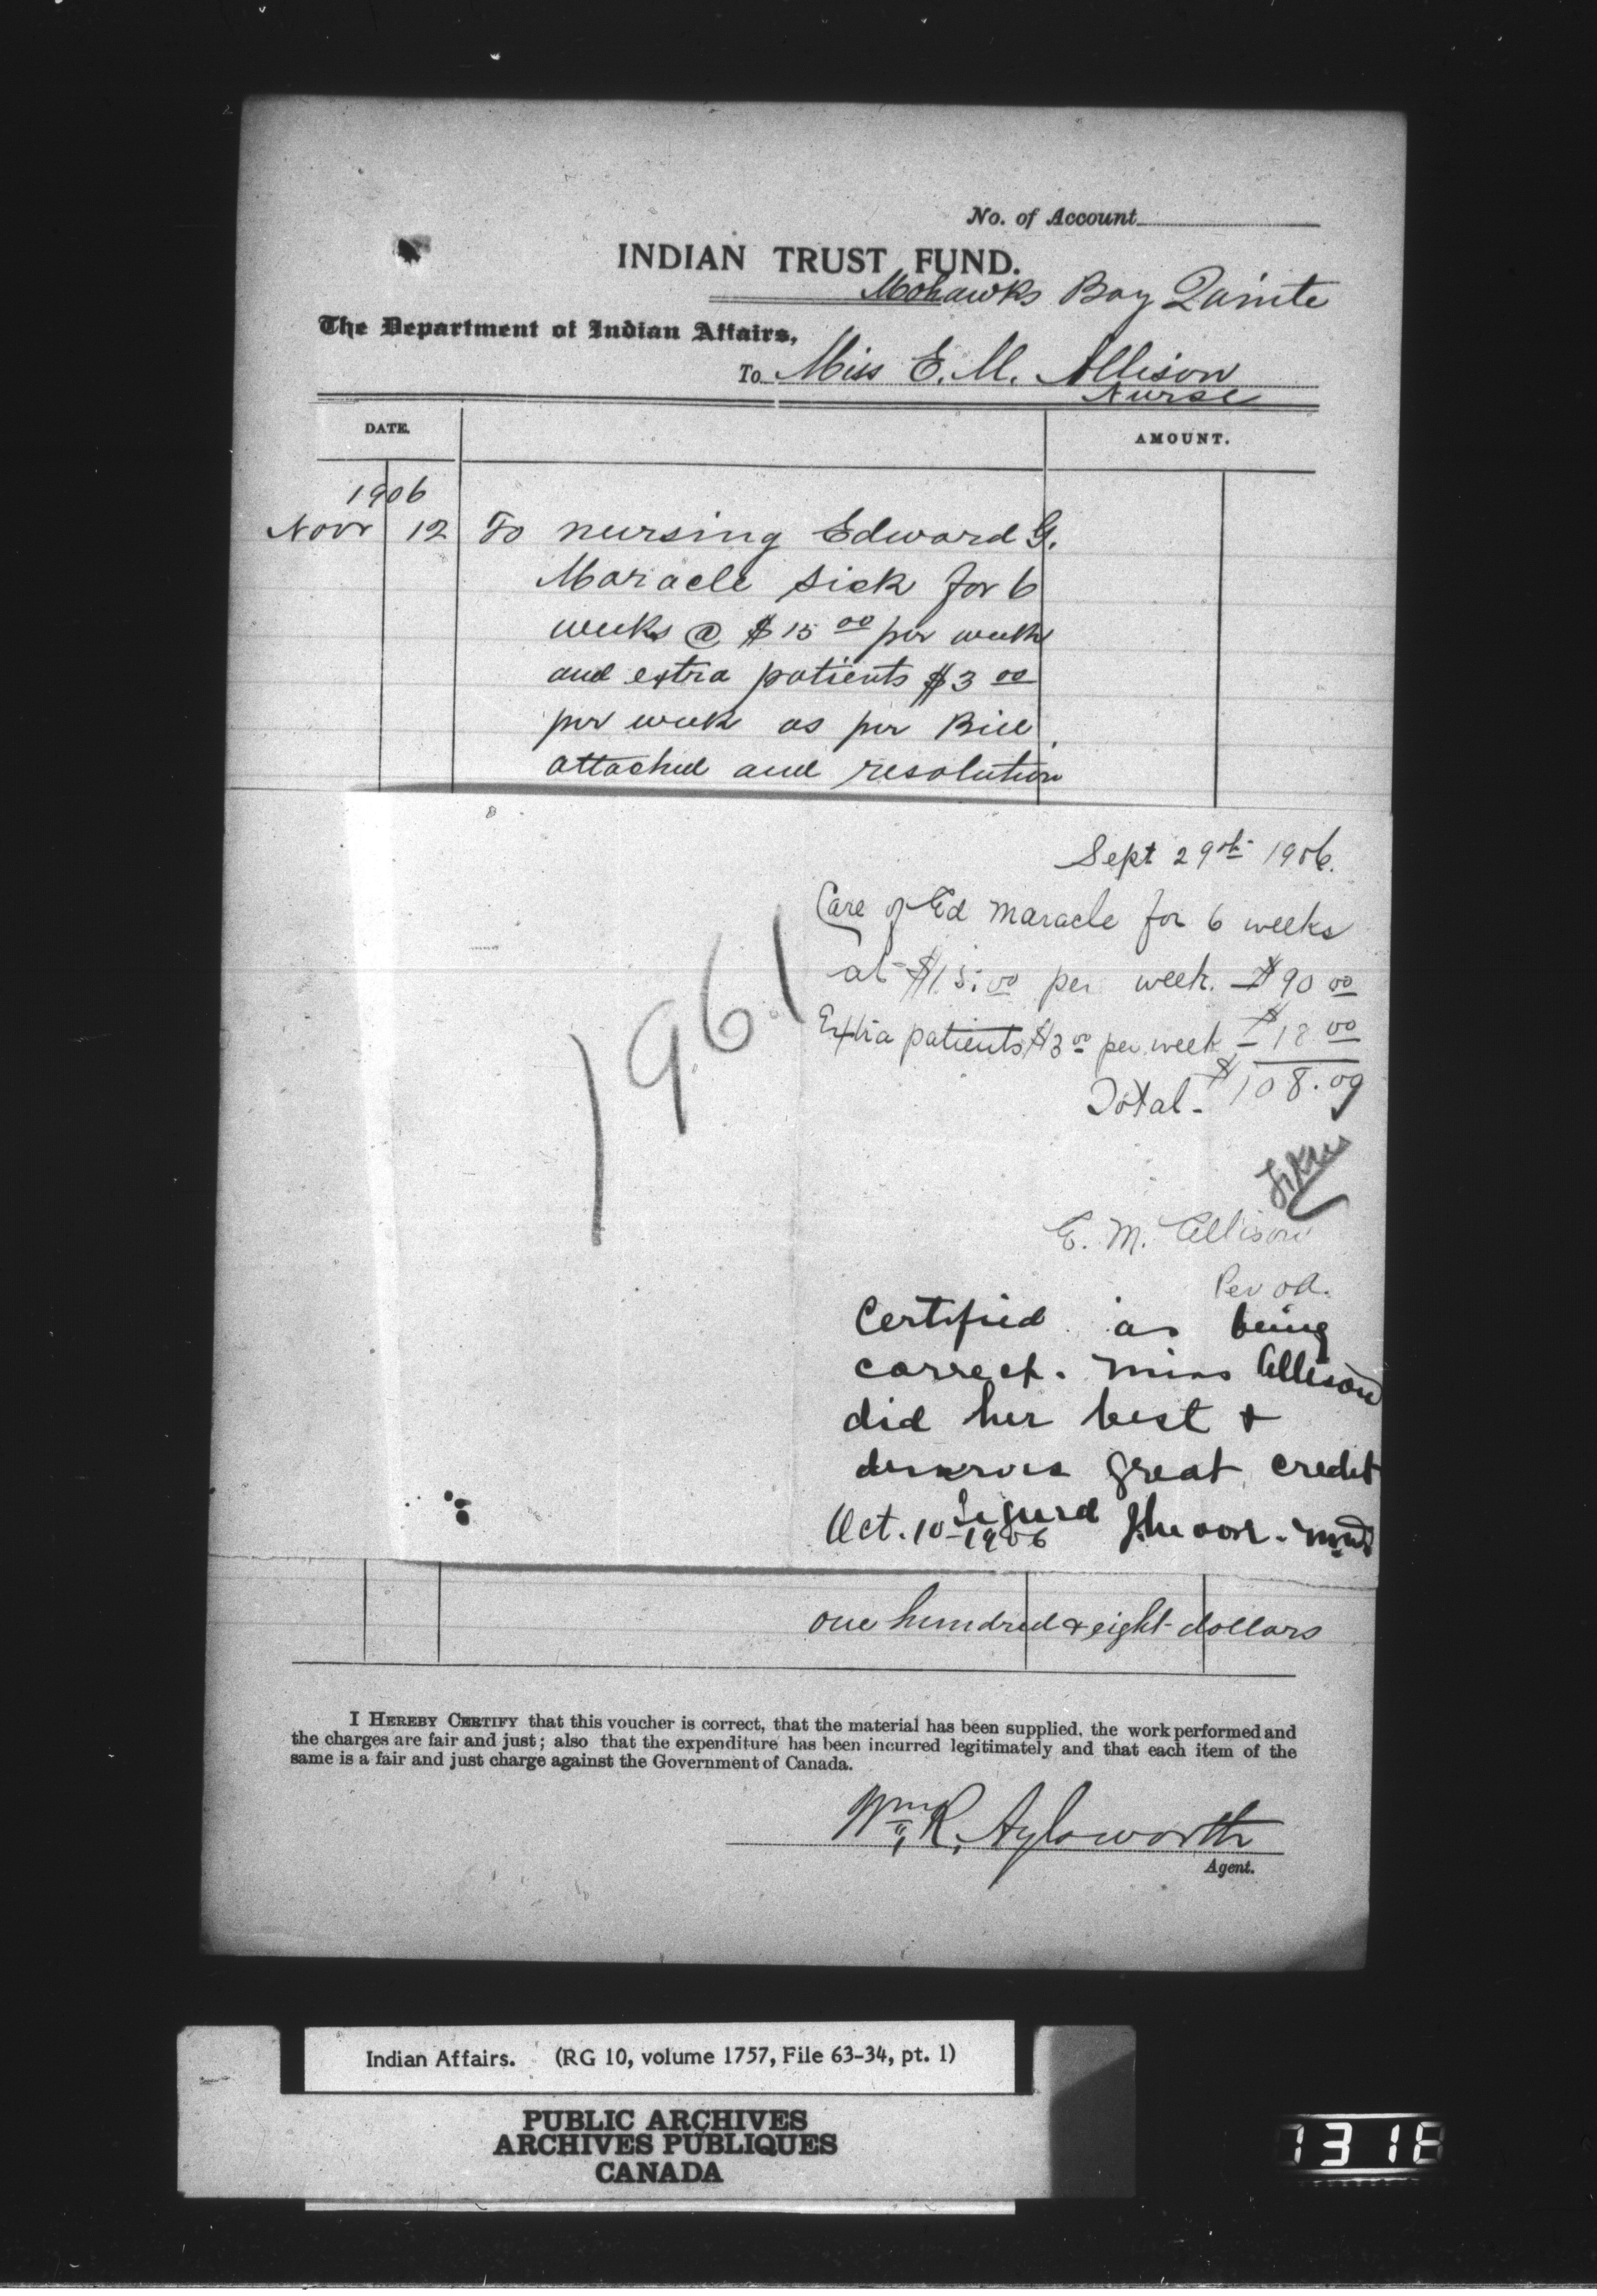 No. of Account
INDIAN TRUST FUND.
Mohawks Bay Quinte
The Department of Indian Affairs,
To Miss E. M. Allison
Nurse
DATE.
AMOUNT.
1906
Novr 12 To nursing Edward G.
Maracle sick for 6
weeks @ $15 00 per week
and extra patients $3 00
per week as per Bill
attached and resolution
Sept 29th 1906.
Care of Ed Maracle for 6 weeks
at $15.00 per week. $90 00
Extra patients $3 00 per week - $18 00
Total - $108.00
1961
E. M. Allison
Per
Certified as being
correct. Miss Allison
did her best &
deserves great credit
Signed
Oct. 10 - 1906
one hundred & eight dollars
I HEREBY CERTIFY that this voucher is correct, that the material has been supplied, the work performed and
the charges are fair and just; also that the expenditure has been incurred legitimately and that each item of the
same is a fair and just charge against the Government of Canada.
Wm. R. Aylsworth
Agent.
Indian Affairs. (RG 10, volume 1757, File 63-34, pt. 1)
PUBLIC ARCHIVES
ARCHIVES PUBLIQUES
CANADA